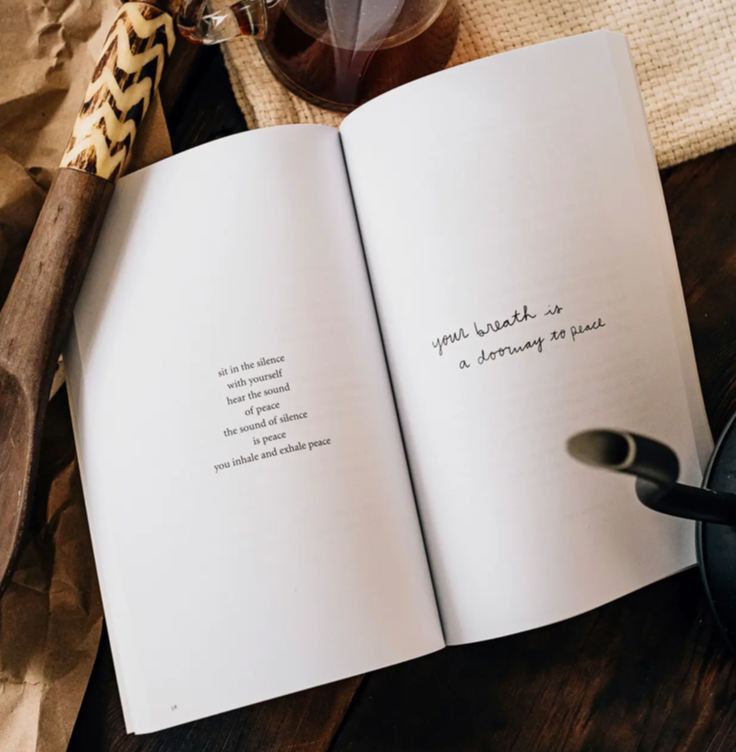 sit in the silence
with yourself
hear the sound
of peace
the sound of silence
is peace
you inhale and exhale peace
your breath is
a doorway to peace